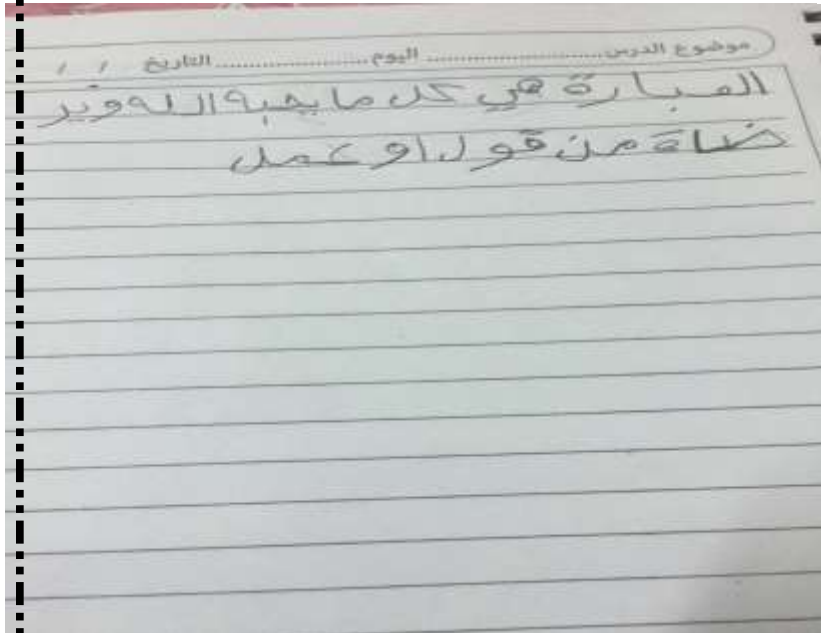 موضوع الدرس.................... اليوم.................... التاريخ / /
العبارة هي كل ما يحبه الله وير
ضاة من قول او عمل